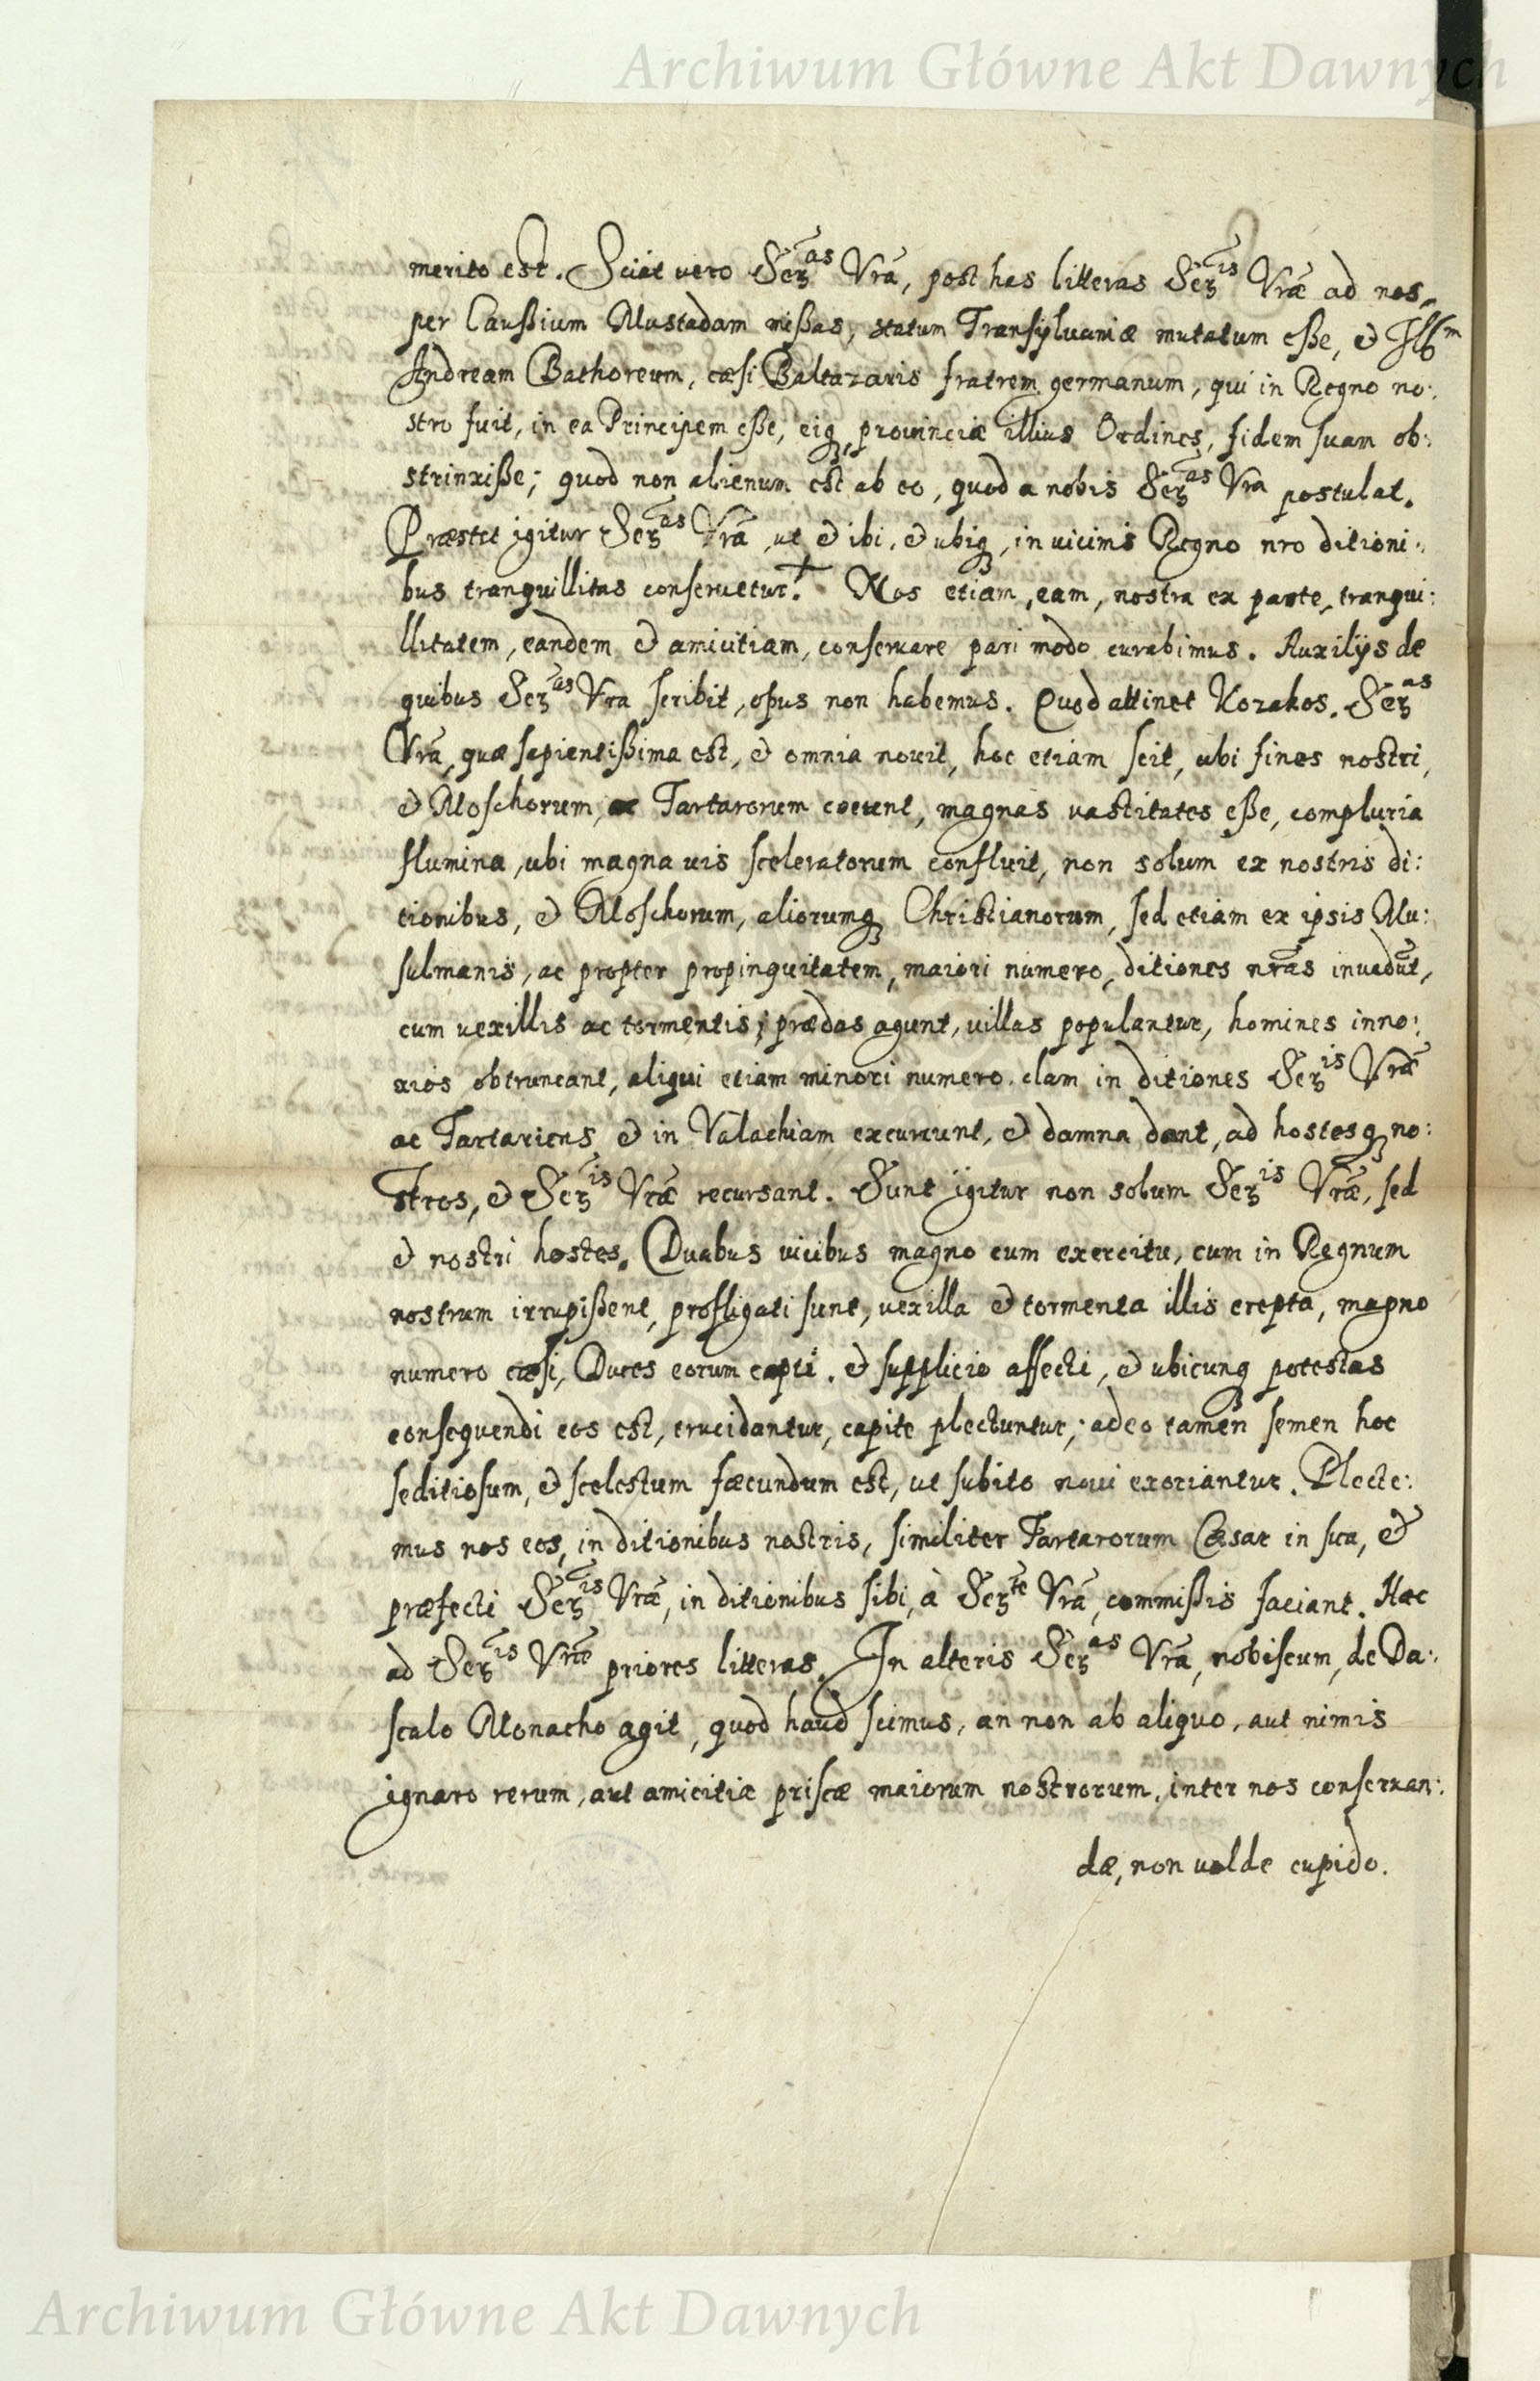 Archiwum Główne Akt Dawnych
merito est. Sciat vero Serᵃˢ Vrā, post has litteras Serⁱˢ Vræ ad nos,
per Caußium Mustadam mißas, statum Transyluaniæ mutatum eße, & Illᵐ
Andream Bathoreum, cæsi Baltazaris fratrem germanum, qui in Regno no:
stro fuit, in ea Principem eße, eiq, prouinciæ illius Ordines, fidem suam ob:
strinxiße; quod non alienum est ab eo, quod a nobis Serᵃˢ Vra postulat.
Præstet igitur Serᵃˢ Vrā, ut & ibi, & ubiq, in uicinis Regno nro ditioni:
bus tranquillitas conseruetur. Nos etiam, eam, nostra ex parte, tranqui:
llitatem, eandem & amicitiam, conseruare pari modo curabimus. Auxilijs de
quibus Serᵃˢ Vra scribit, opus non habemus. Quod attinet Kozakos. Serᵃˢ
Vrā, quæ sapientißima est, & omnia nouit, hoc etiam scit, ubi fines nostri,
& Moschorum, ac Tartarorum coeunt, magnas vastitates eße, compluria
flumina, ubi magna uis sceleratorum confluit, non solum ex nostris di:
tionibus, & Moschorum, aliorumq Christianorum, sed etiam ex ipsis Mu:
sulmanis, ac propter propinquitatem, maiori numero, ditiones nrās inuadūt,
cum vexillis ac tormentis; prædas agunt, villas populantur, homines inno:
xios obtruncant, aliqui etiam minori numero, clam in ditiones Serⁱˢ Vræ
ac Tartaricas & in Valachiam excurrunt, & damna dant, ad hostesq no:
stros, & Serⁱˢ Vræ recursant. Sunt igitur non solum Serⁱˢ Vræ, sed
& nostri hostes. Duabus uicibus magno cum exercitu, cum in Regnum
nostrum irrupißent, profligati sunt, vexilla & tormenta illis erepta, magno
numero cæsi, Duces eorum capti, & supplicio affecti, & ubicunq potestas
consequendi eos est, trucidantur, capite plectuntur; adeo tamen semen hoc
seditiosum, & scelestum fæcundum est, ut subito noui exoriantur. Plecte:
mus nos eos, in ditionibus nostris, similiter Tartarorum Cæsar in sua, &
præfecti Serⁱˢ Vræ, in ditionibus sibi, à Serᵗᵉ Vrā, commißis faciant. Hæc
ad Serⁱˢ Vræ priores litteras. In alteris Serᵃˢ Vrā, nobiscum, de Da:
scalo Monacho agit, quod haud scimus, an non ab aliquo, aut nimis
ignaro rerum, aut amicitiæ priscæ maiorum nostrorum, inter nos conseruan:
dæ, non valde cupido.
Archiwum Główne Akt Dawnych